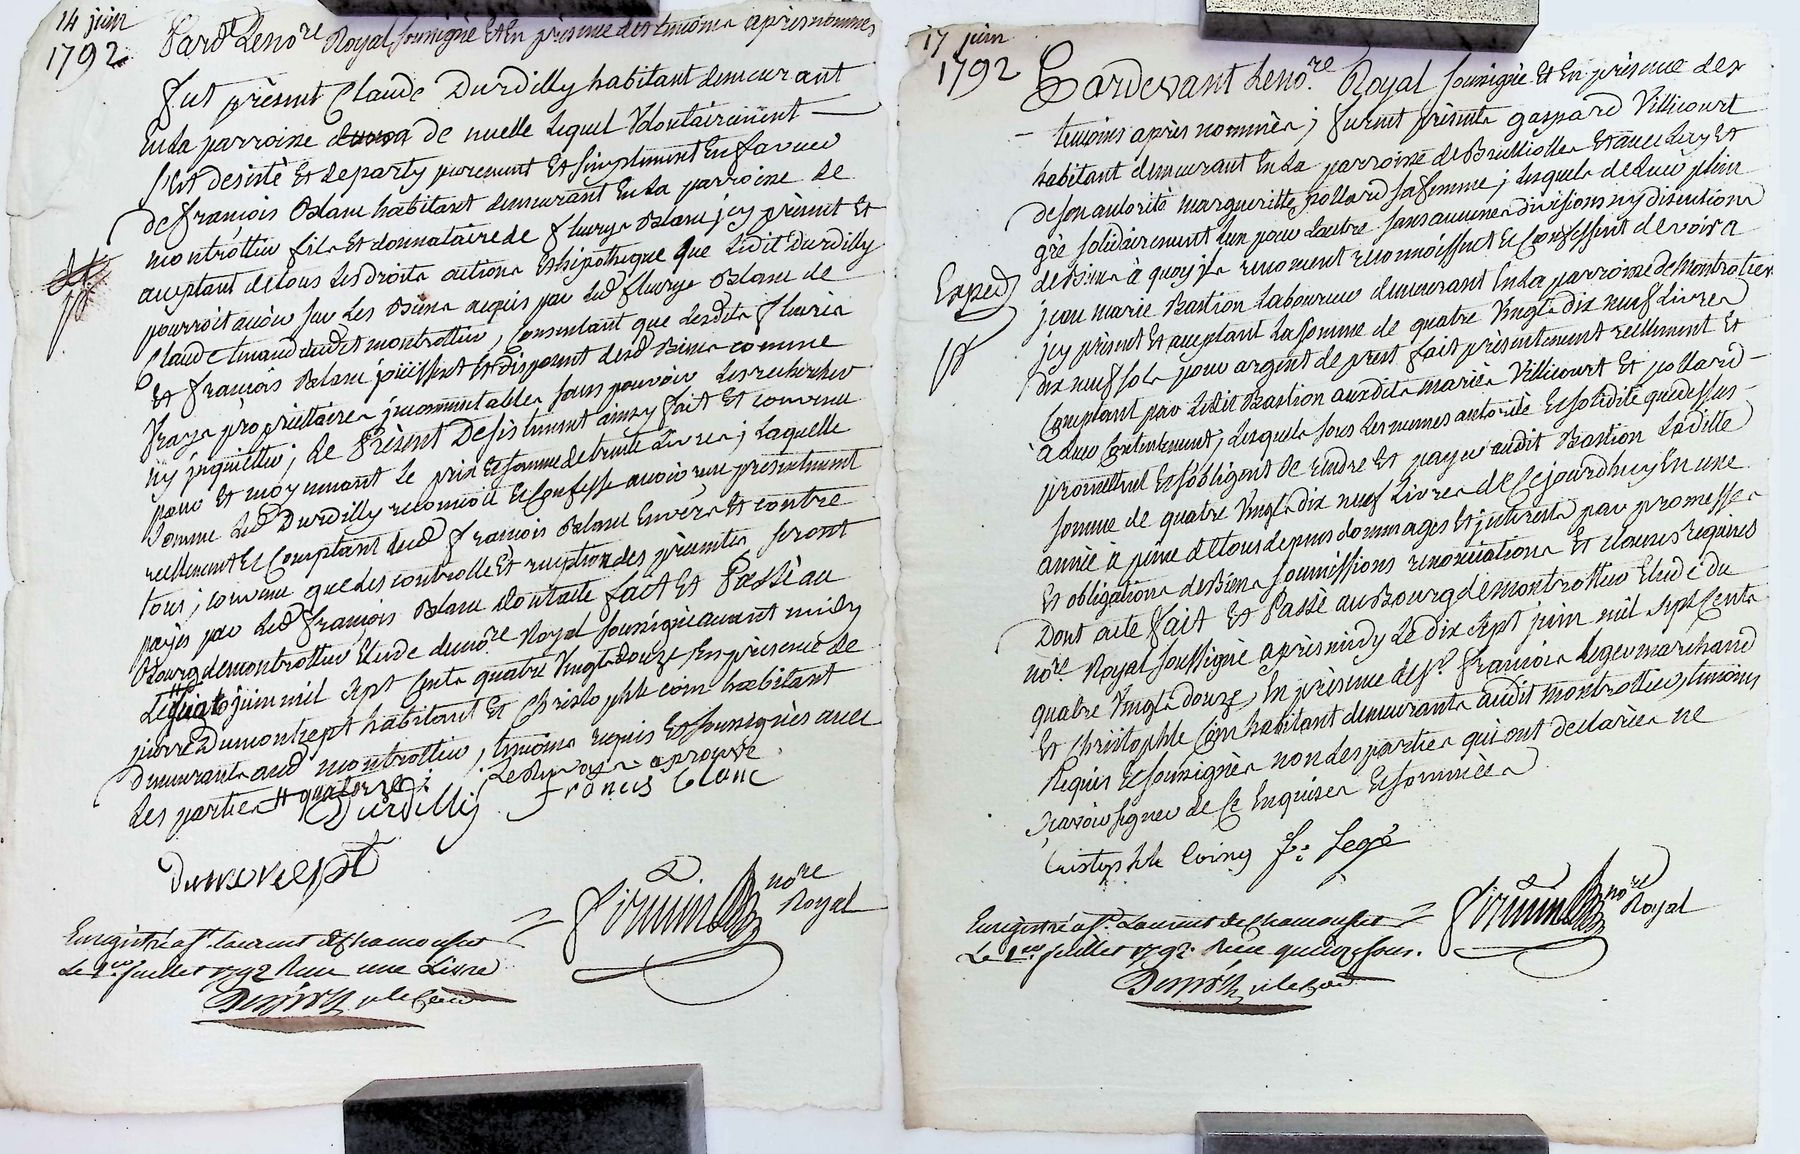 14 juin
1792.
Pard.t Le no.re Royal soussigné Et En présence des temoins après nommés
fut présent Claude Durdilly habitant demeurant
En la parroisse de nuelle Lequel Volontairement
s'est desisté Et departy purement Et simplement En faveur
de françois Blanc habitant demeurant En la parroisse de
montrottier fils Et donnataire de fleurye Blanc jcy présent Et
acceptant de tous Les droits actions Et hipotheque que Ledit Durdilly
pourroit avoir sur Les Biens acquis par Led. fleurye Blanc de
Claude dudit montrottier, Consentant que Lesdits fleurie
Et françois Blanc jouissent Et disposent desd. Biens comme
Vrays propriettaires jncommutables sans pouvoir Les rechercher
ny jnquietter; Le Présent Desistement ainsy fait Et convenu
pour Et moyennant Le prix Et somme de trente Livres; Laquelle
somme Led. Durdilly reconnoit Et Confesse avoir reçue présentement
réellement Et Comptant dud. françois Blanc Envers Et contre
tous; convenu que Les controlle Et expéditions des présentes seront
payés par Led. françois Blanc Dont acte fait Et Passé au
Bourg de montrottier Etude du no.re Royal soussigné avant midy
Le juin mil sept cents quatre Vingts douze En présence de
pierre Dumontcept habitant Et Christophle coin habitant
demeurants aud. montrottier, temoins requis Et soussignés avec
Les parties # quatorze:
Durdilly
francis blanc
Firmin no.re
Royal
Enregistré a s.t Laurent de Chamousset
Le 1.er Juillet 1792 Reçu une Livre
17 juin
1792
Pardevant Le no.re Royal soussigné Et En présence des
temoins après nommés; furent présents gaspard Villicourt
habitant demeurant En La parroisse de Brulliolles Et avec Luy Et
de son autorité margueritte pollard sa femme; Lesquels de Leur plein
gré solidairement L'un pour L'autre sans aucunes divisions ny discutions
de Biens à quoy jls renoncent reconnoissent Et Confessent devoir a
Exped.
jean marie Bastion Laboureur demeurant En La parroisse de Montrotier
jcy présent Et acceptant La somme de quatre Vingts dix neuf Livres
dix neuf sols pour argent de prest fait présentement réellement Et
Comptant par Ledit Bastion auxdits mariés Villicourt Et pollard
à Leur Contentement; Lesquels sous Les mêmes autorité Et solidité que dessus
promettent Et s'obligent de rendre Et payer audit Bastion Ladite
somme de quatre Vingts dix neuf Livres de Ce jourd'huy En une
année à peine de tous depens dommages Et jnterests par promesses
Et obligations de Biens soumissions renonciations Et clauses requises
Dont acte fait Et Passé au Bourg de montrottier Etude du
no.re Royal soussigné après midy Le dix sept juin mil sept cents
quatre Vingts douze, En présence de s.r françois Leger marchand
Et Christophle Coin habitant demeurants audit montrottier, temoins
Requis Et soussignés non Les parties qui ont declarées ne
scavoir signer de Ce Enquises Et sommées
Cristophle Coing
Firmin no.re
Royal
Enregistré a s.t Laurent de Chamousset
Le 1.er Juillet 1792. Reçu quinze sous.